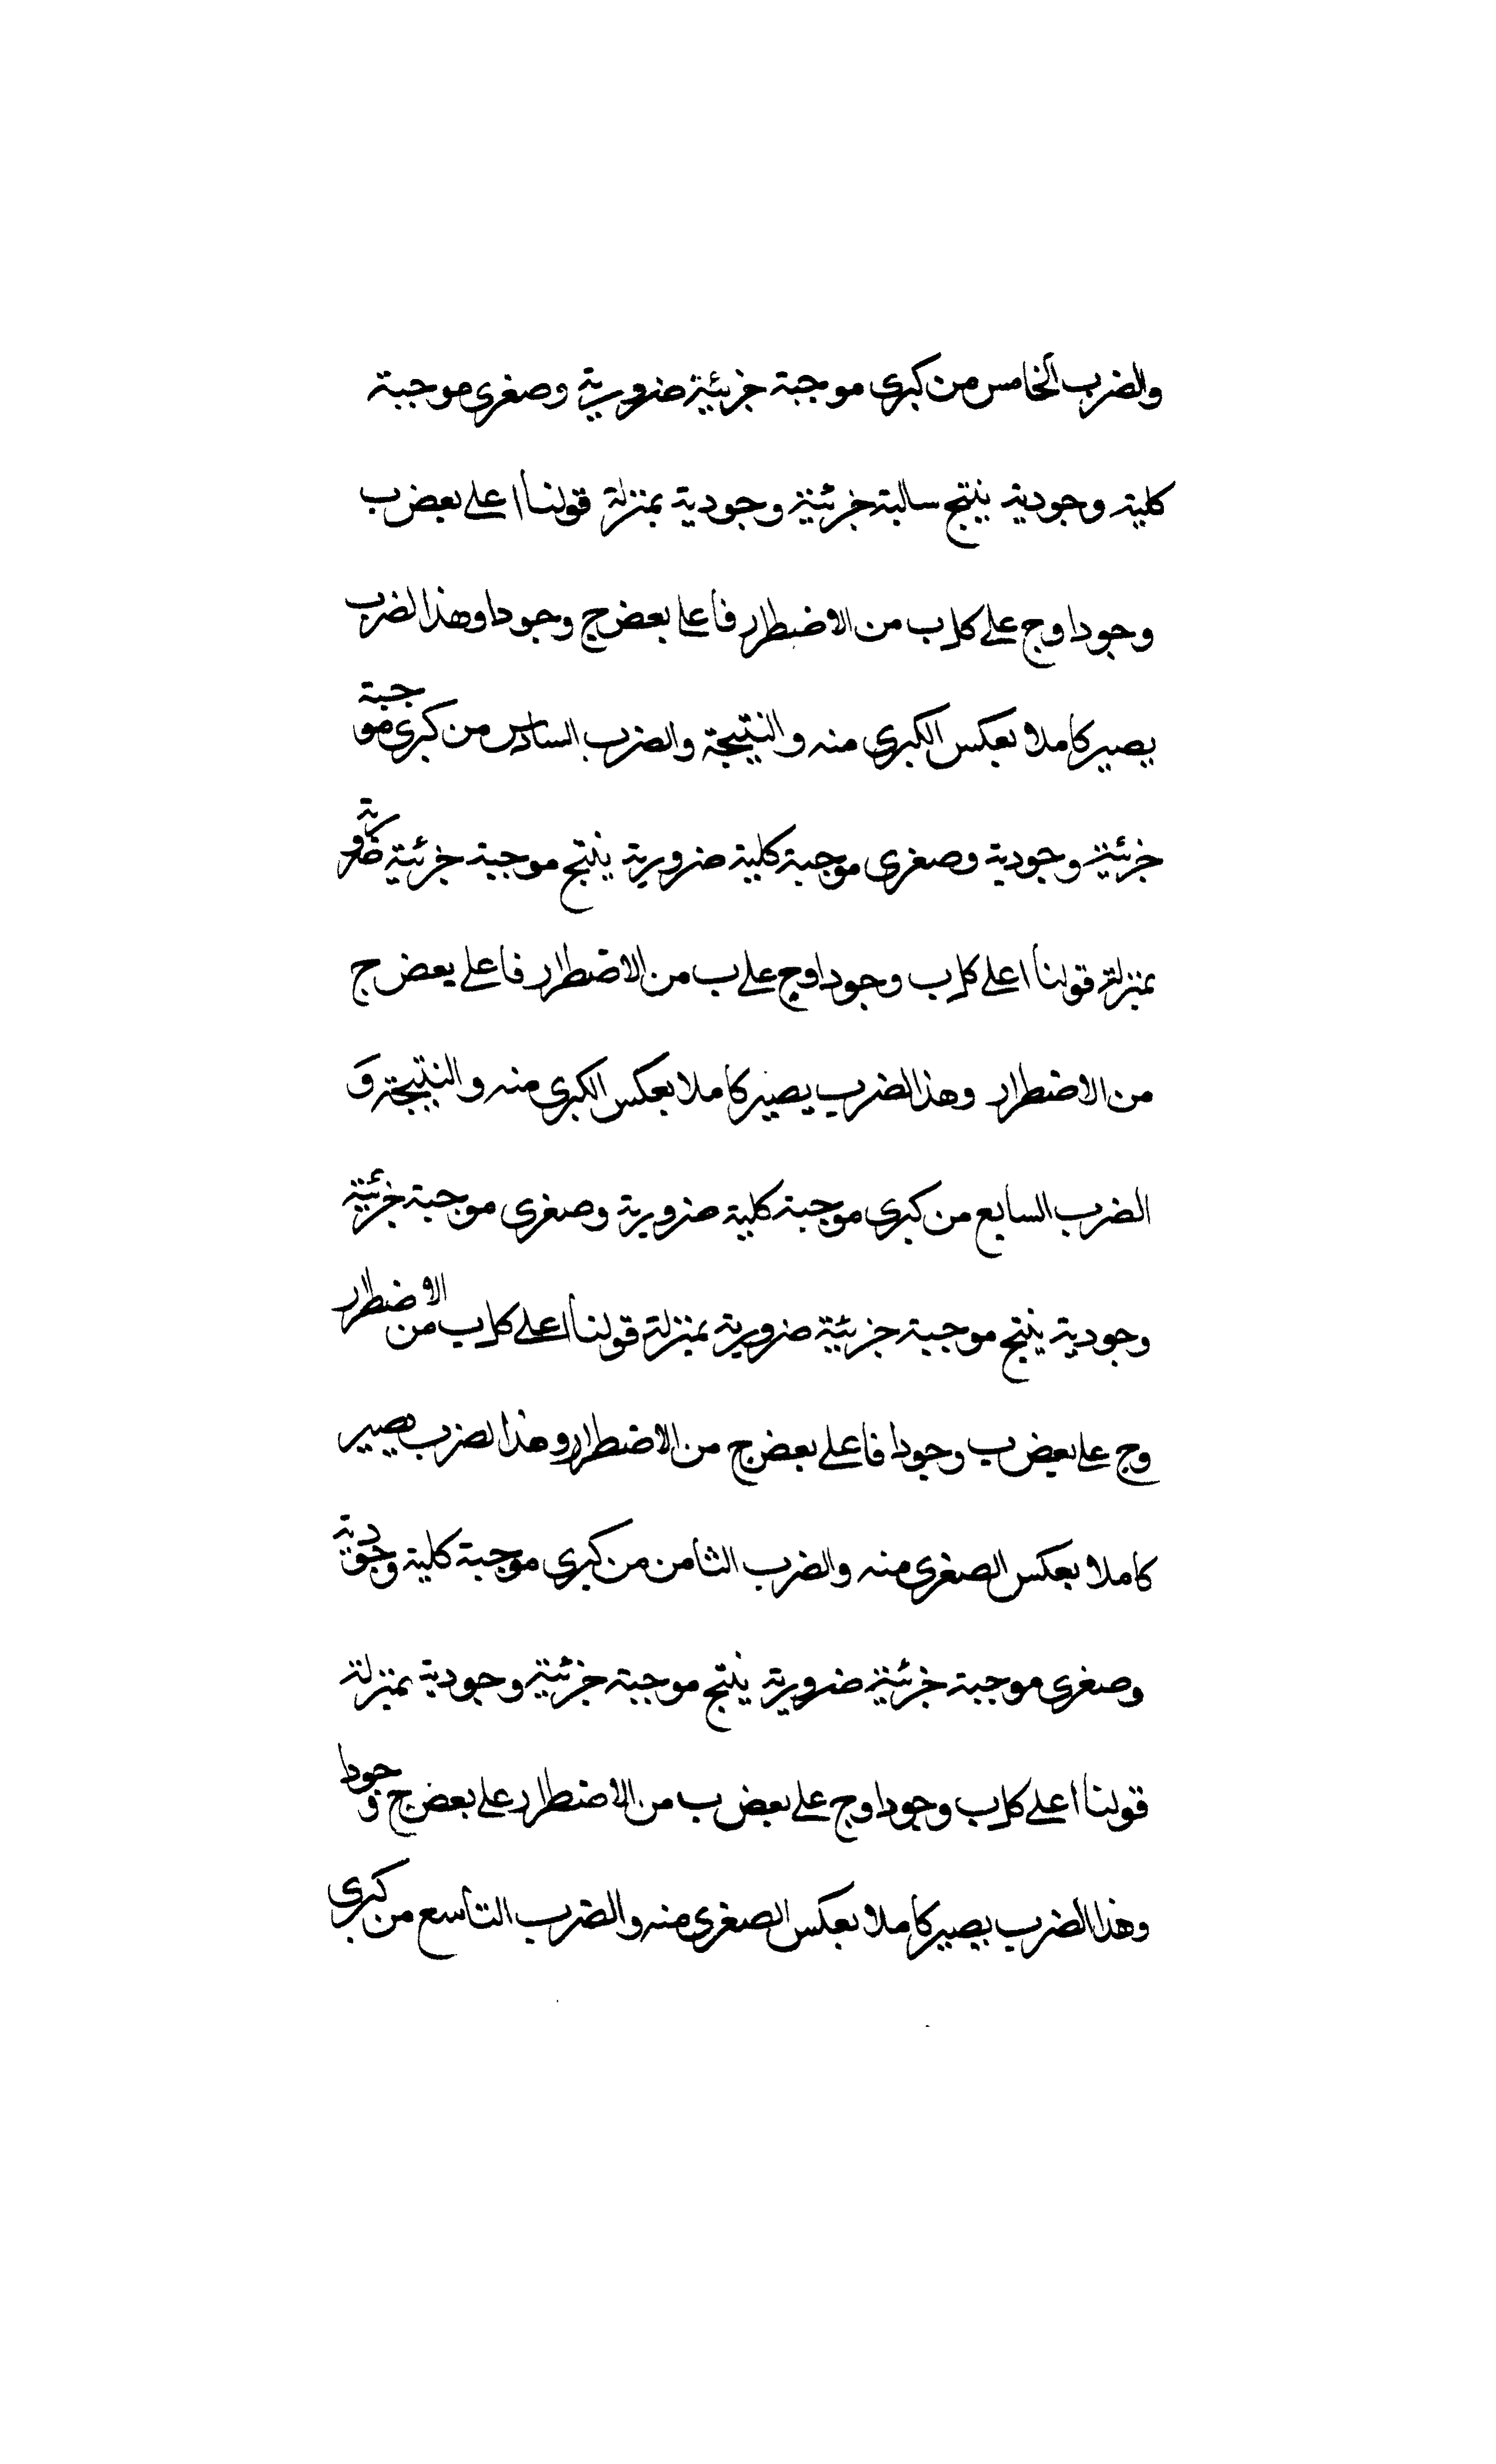 والضرب الخامس من كبرى موجبة جزئية ضرورية وصغرى موجبة
كلية وجودية ينتج سالبة جزئية وجودية بمنزلة قولنا ا على بعض ب
وجودا وج على كل ب من الاضطرار فا على بعض ج وجودا وهذا الضرب
يصير كاملا بعكس الكبرى منه والنتيجة والضرب السادس من كبرى موجبة
جزئية وجودية وصغرى موجبة كلية ضرورية ينتج موجبة جزئية ضرورية
بمنزلة قولنا ا على كل ب وجودا وج على ب من الاضطرار فا على بعض ج
من الاضطرار وهذا الضرب يصير كاملا بعكس الكبرى منه والنتيجة و
الضرب السابع من كبرى موجبة كلية ضرورية وصغرى موجبة جزئية
وجودية ينتج موجبة جزئية ضرورية بمنزلة قولنا ا على كل ب من الاضطرار
وج على بعض ب وجودا فا على بعض ج من الاضطرار وهذا الضرب يصير
كاملا بعكس الصغرى منه والضرب الثامن من كبرى موجبة كلية وجودية
وصغرى موجبة جزئية ضرورية ينتج موجبة جزئية وجودية بمنزلة
قولنا ا على كل ب وجودا وج على بعض ب من الاضطرار على بعض ج وجودا
وهذا الضرب يصير كاملا بعكس الصغرى منه والضرب التاسع من كبرى